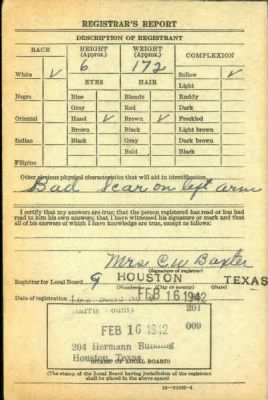 REGISTRAR'S REPORT
DESCRIPTION OF REGISTRANT
RACE HEIGHT (Approx.) WEIGHT (Approx.) COMPLEXION
6 172
White ✓ EYES HAIR Sallow ✓
Light
Negro Blue Blonde Ruddy
Gray Red Dark
Oriental Hazel ✓ Brown ✓ Freckled
Brown Black Light brown
Indian Black Gray Dark brown
Bald Black
Filipino
Other obvious physical characteristics that will aid in identification
Bad scar on left arm
I certify that my answers are true; that the person registered has read or has had
read to him his own answers; that I have witnessed his signature or mark and that
all of his answers of which I have knowledge are true, except as follows:
Mrs C W Baxter
(Signature of registrar)
Registrar for Local Board 9 HOUSTON TEXAS
(Number) (City or county) (State)
Date of registration FEB 16 1942
Harris County 201
FEB 16 1942 009
204 Hermann Building
Houston, Texas
(STAMP OF LOCAL BOARD)
(The stamp of the Local Board having jurisdiction of the registrant
shall be placed in the above space)